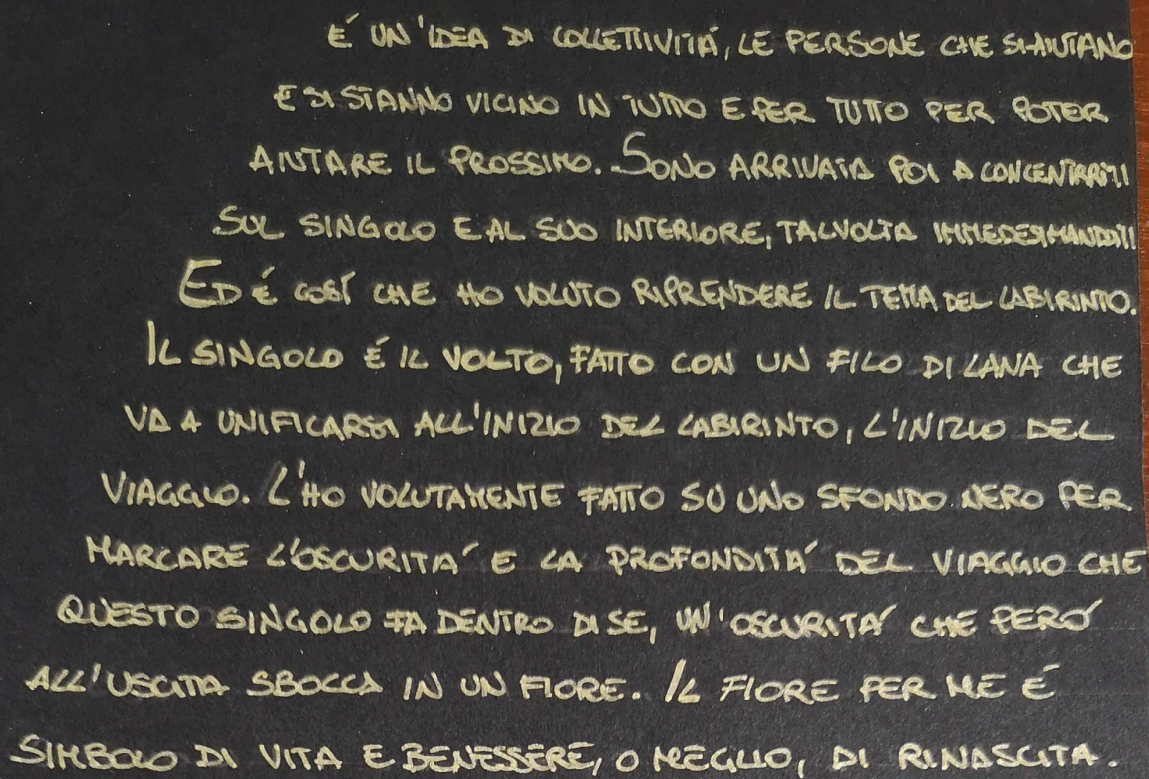 É UN'IDEA DI COLLETTIVITÁ, LE PERSONE CHE SI AIUTANO
E SI STANNO VICINO IN TUTTO E PER TUTTO PER POTER
AIUTARE IL PROSSIMO. SONO ARRIVATA POI A CONCENTRARMI
SUL SINGOLO E AL SUO INTERIORE, TALVOLTA IMMEDESIMANDOMI
ED É COSÍ CHE HO VOLUTO RIPRENDERE IL TEMA DEL LABIRINTO.
IL SINGOLO É IL VOLTO, FATTO CON UN FILO DI LANA CHE
VA A UNIFICARSI ALL'INIZIO DEL LABIRINTO, L'INIZIO DEL
VIAGGIO. L'HO VOLUTAMENTE FATTO SU UNO SFONDO NERO PER
MARCARE L'OSCURITA' E LA PROFONDITA' DEL VIAGGIO CHE
QUESTO SINGOLO FA DENTRO DI SE, UN'OSCURITA' CHE PERÓ
ALL'USCITA SBOCCA IN UN FIORE. IL FIORE PER ME É
SIMBOLO DI VITA E BENESSERE, O MEGLIO, DI RINASCITA.